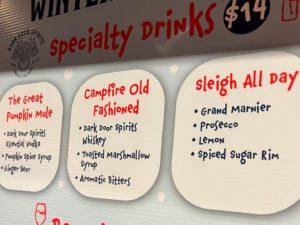 WINTER
specialty Drinks $14
DARK DOOR SPIRITS
The Great
Pumpkin Mule
• Dark Door Spirits
Essential Vodka
• Pumpkin Spice Syrup
• Ginger Beer
Campfire Old
Fashioned
• Dark Door Spirits
Whiskey
• Toasted Marshmallow
Syrup
• Aromatic Bitters
Sleigh All Day
• Grand Marnier
• Prosecco
• Lemon
• Spiced Sugar Rim